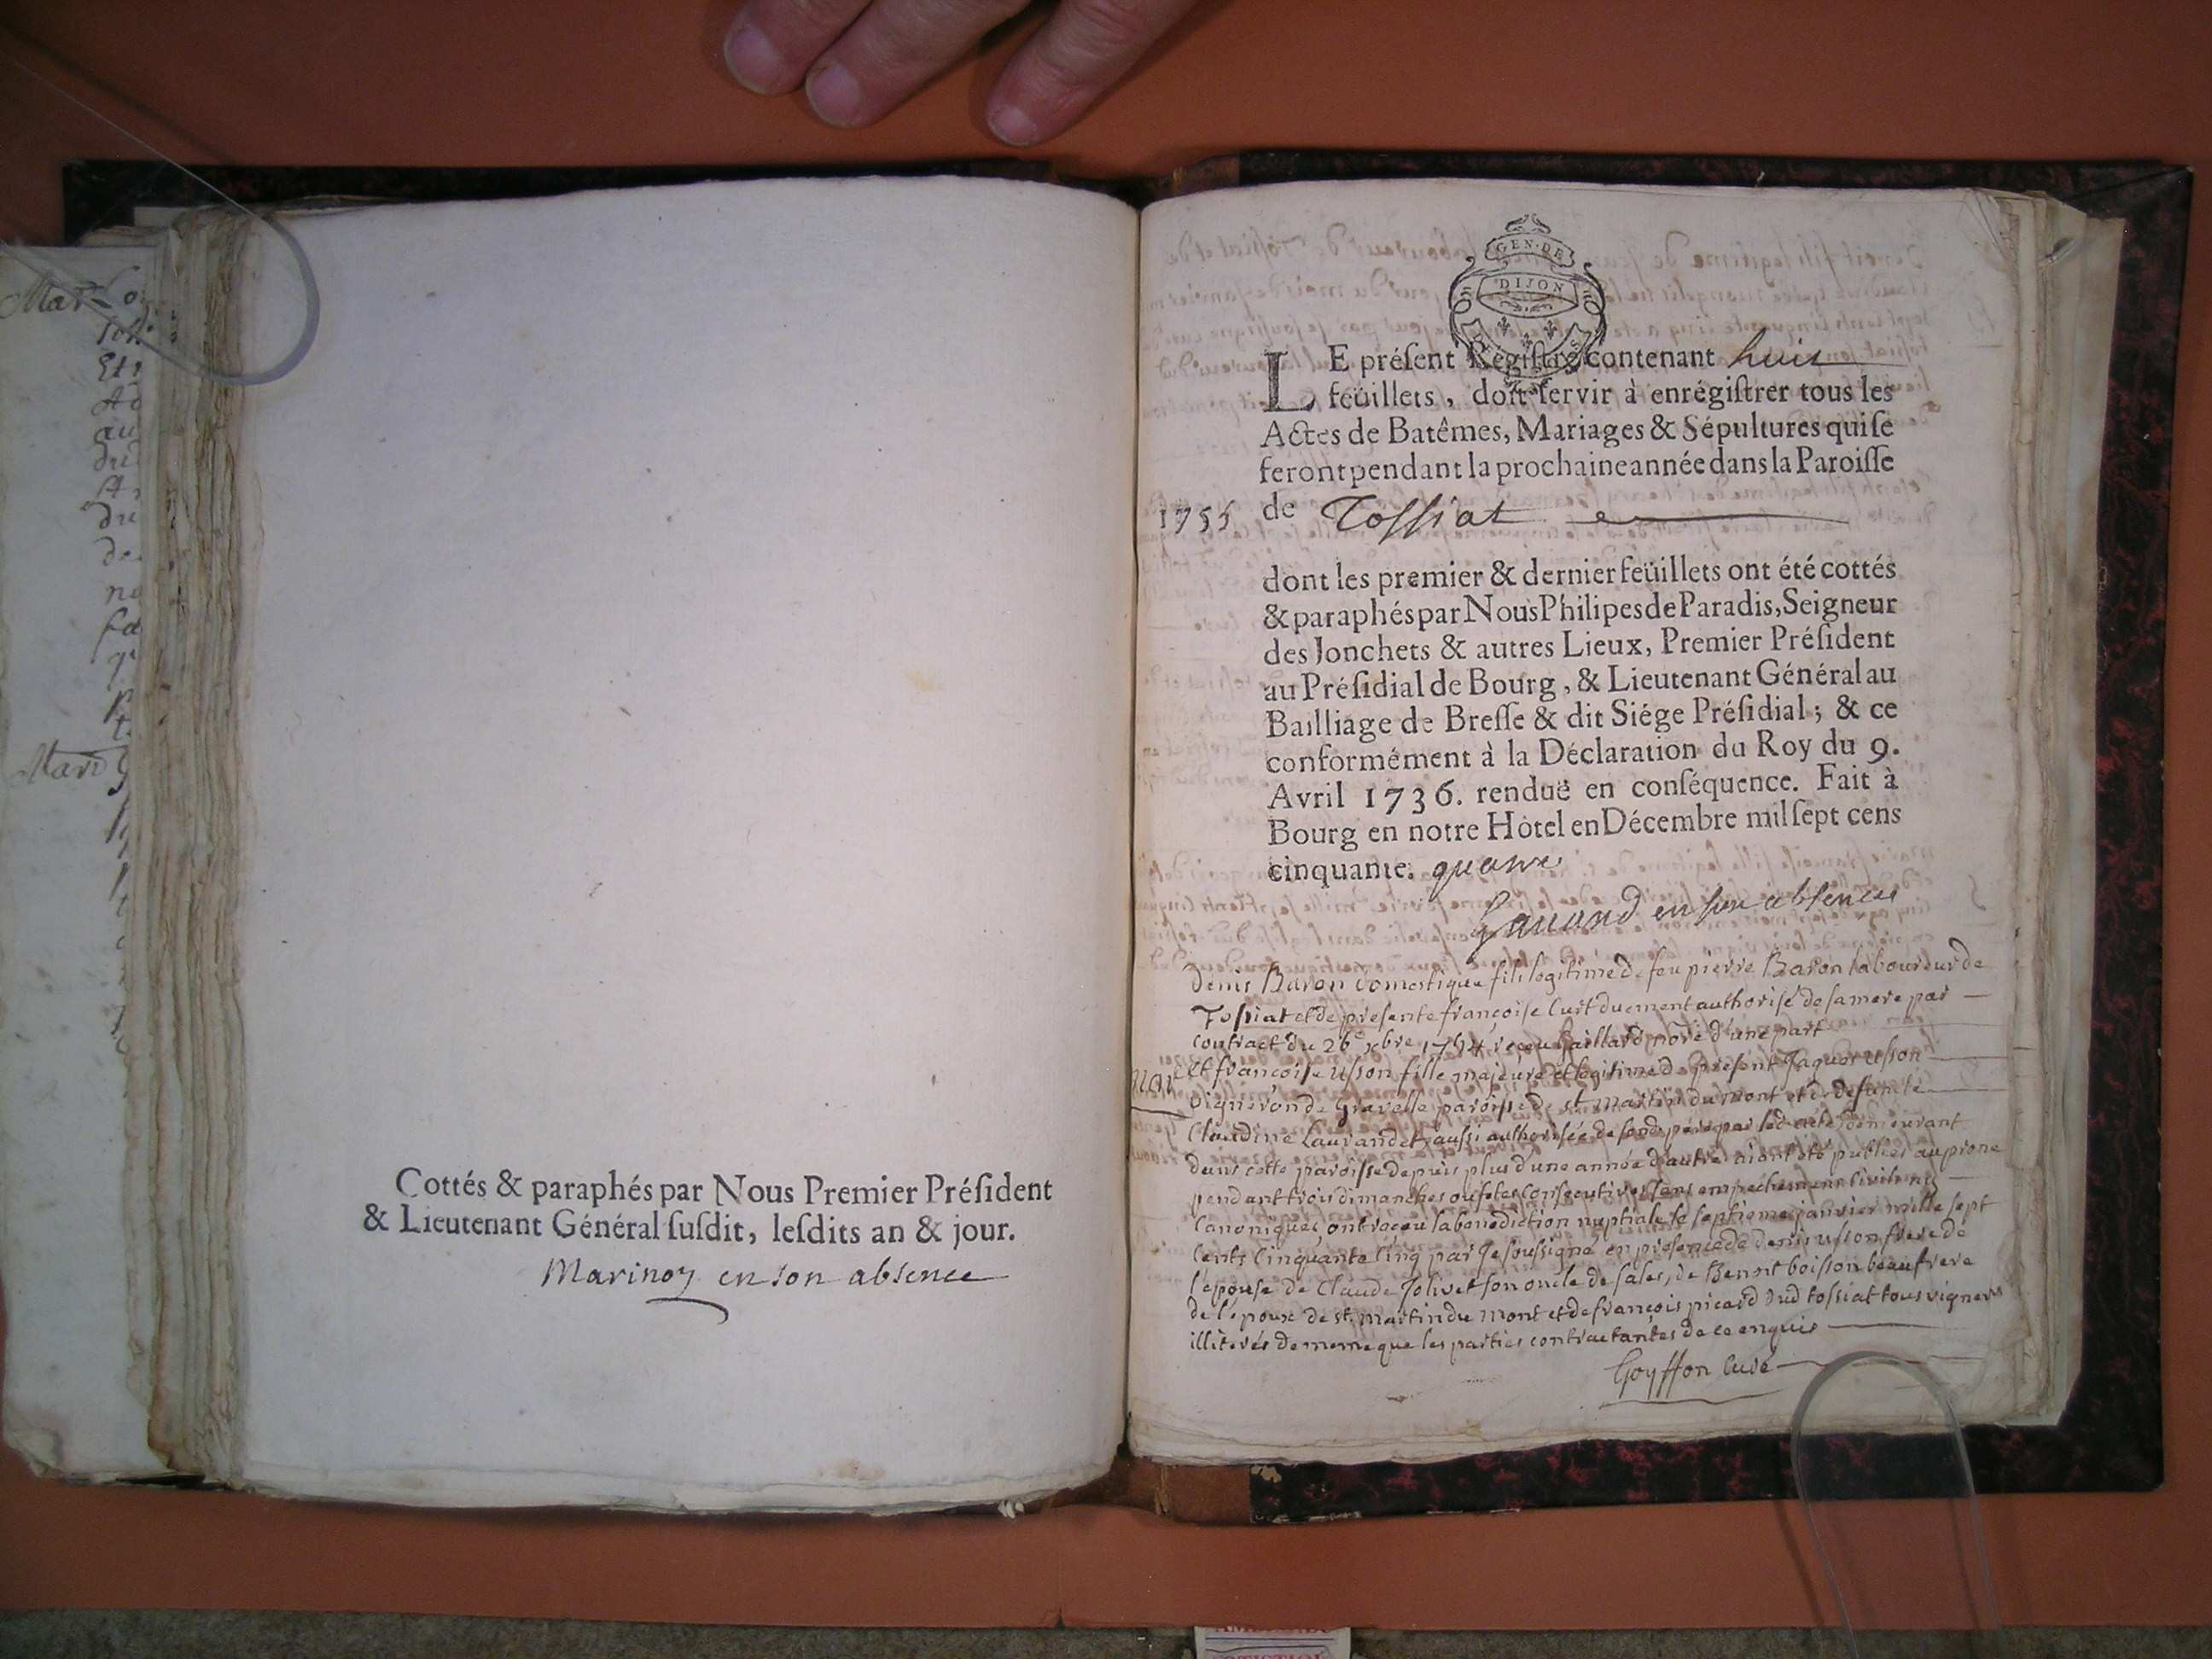 Cottés & paraphés par Nous Premier Préſident
& Lieutenant Général ſuſdit, leſdits an & jour.
en son absence
GEN·DE
DIJON
LE préſent Régiſtre contenant huit
feüillets, doit ſervir à enrégiſtrer tous les
Actes de Batêmes, Mariages & Sépultures qui ſe
feront pendant la prochaine année dans la Paroiſſe
1755 de Tossiat
dont les premier & dernier feüillets ont été cottés
& paraphés par Nous Philipes de Paradis, Seigneur
des Jonchets & autres Lieux, Premier Préſident
au Préſidial de Bourg, & Lieutenant Général au
Bailliage de Breſſe & dit Siége Préſidial; & ce
conformément à la Déclaration du Roy du 9.
Avril 1736. renduë en conſéquence. Fait à
Bourg en notre Hôtel en Décembre mil ſept cens
cinquante. quatre
en son absence
Denis Baron domestique fils legitime de feu pierre Baron laboureur de
Tossiat et de presente françoise Curt duement authorisé de sa mere par
contract du 26e xbre 1754 reçeu Gaillard nore d'une part
Mar Et françoise usson fille majeure et legitime de present Jaques usson
vigneron de Gravelle paroisse de st martin du mont et de defuncte
Claudine Laurandet aussi authorisée de sond. pere par led. acte demeurant
dans cette paroisse depuis plus d'une année d'autre aiant été publiés au prone
pendant trois dimanches ou fetes consecutives sans empechement civils ny
Canoniques, ont reçeu la benediction nuptiale le septieme janvier mille sept
Cents Cinquante Cinq par Je soussigné en presence de denis usson frere de
l'epouse de Claude Jolivet son oncle de sales, de Benoit boisson beaufrere
de l'époux de st martin du mont et de françois picard dud tossiat tous vignerons
illiterés de meme que les parties contractantes de ce enquis
Goyffon Curé